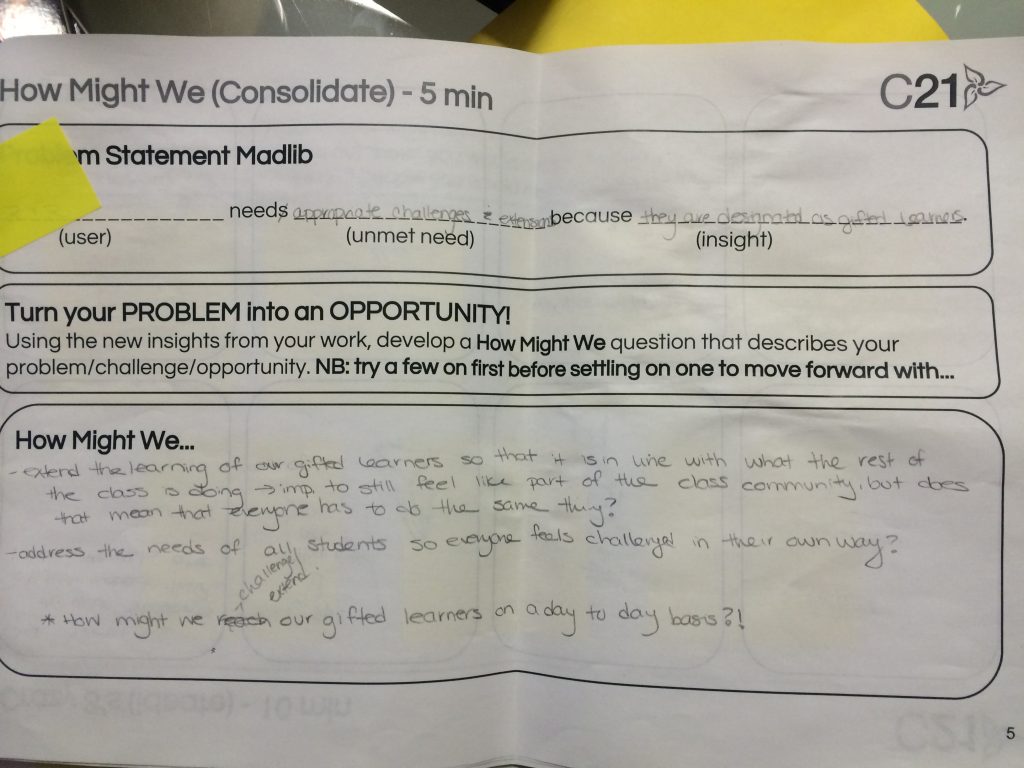 How Might We (Consolidate) - 5 min
C21
m Statement Madlib
needs appropriate challenges & extension because they are designated as gifted learners.
(user) (unmet need) (insight)
Turn your PROBLEM into an OPPORTUNITY!
Using the new insights from your work, develop a How Might We question that describes your
problem/challenge/opportunity. NB: try a few on first before settling on one to move forward with...
How Might We...
- extend the learning of our gifted learners so that it is in line with what the rest of
the class is doing → imp. to still feel like part of the class community, but does
that mean that everyone has to do the same thing?
- address the needs of all students so everyone feels challenged in their own way?
challenge/
extend
* How might we reach our gifted learners on a day to day basis?!
5